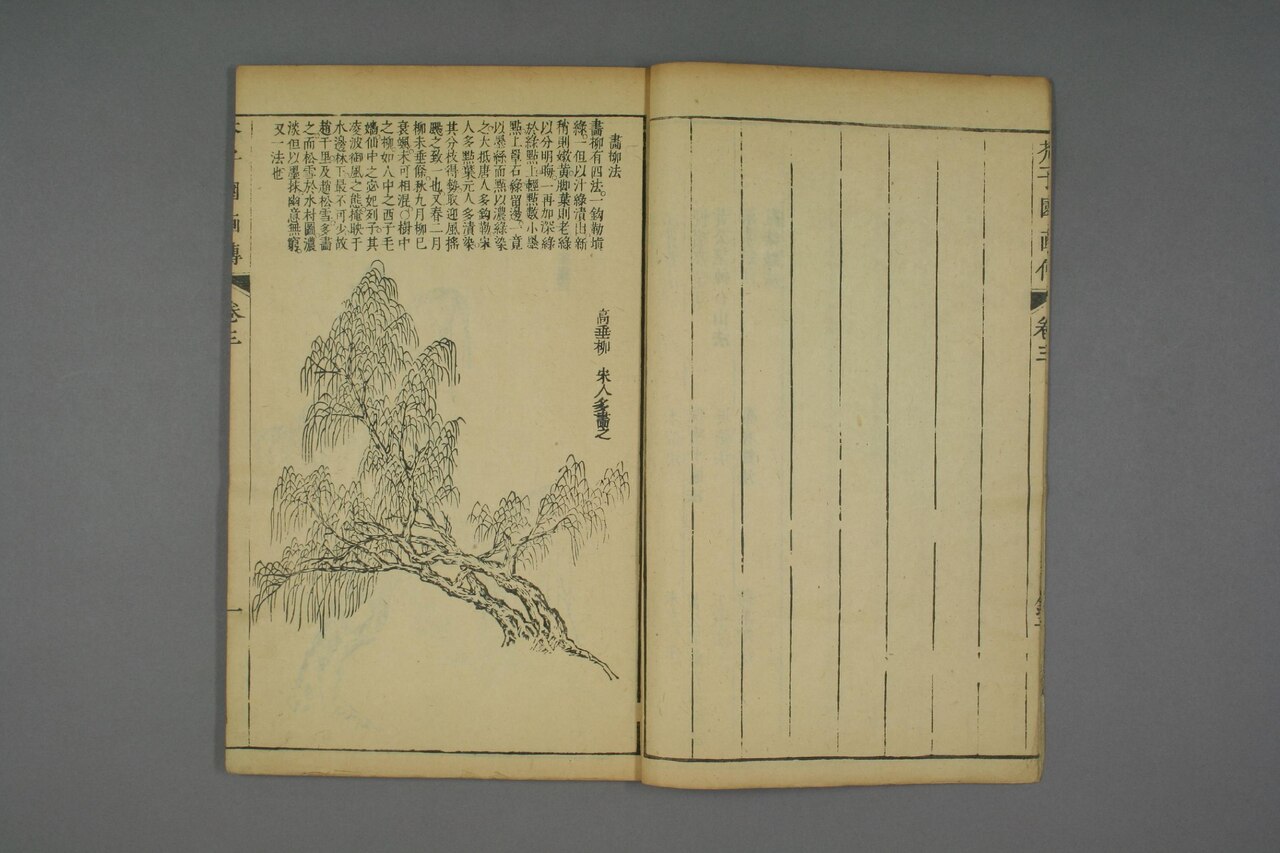 芥子園畫傳 卷三
畫柳法
畫柳有四法。一鈎勒填
綠一但以汁綠漬出新
稍則嫩黃脚葉則老綠
以分明晦一再加深綠
於綠點上輕點數小墨
點上單石綠留邊一竟
以墨絲而點以濃綠染
之大抵唐人多鈎勒宋
人多點葉元人多漬染
其分枝得勢取迎風搖
颺之致一也又春二月
柳未垂條秋九月柳已
衰颯不可相混〇樹中
之柳如人中之西子毛
嬙仙中之宓妃列子其
凌波御風之態掩映于
水邊林下最不可少故
趙千里及趙松雪多畫
之而松雪於水村圖濃
淡但以墨抹幽意無窮。
又一法也
高垂柳 宋人多畫之
子園畫傳 卷三 一